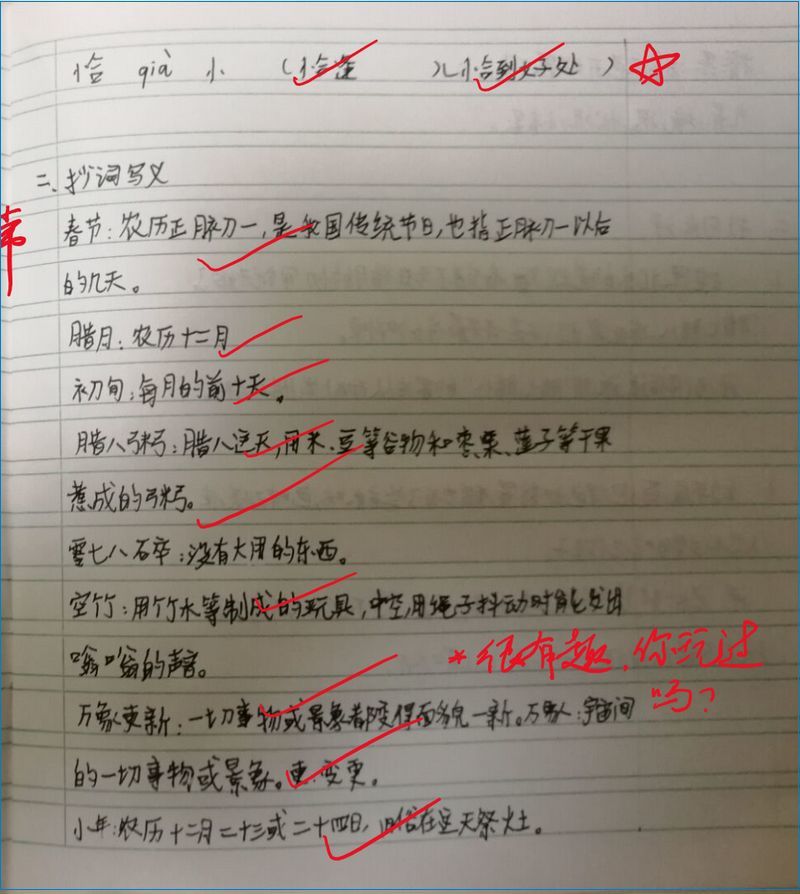 恰 qià 忄 (恰逢 )(恰到好处 )
二、抄词写义
春节:农历正月初一,是我国传统节日,也指正月初一以后
的几天。
腊月:农历十二月
初旬:每月的前十天。
腊八粥:腊八这天,用米、豆等谷物和枣、栗、莲子等干果
熬成的粥。
零七八碎:没有大用的东西。
空竹:用竹木等制成的玩具,中空,用绳子抖动时能发出
嗡嗡的声音。
*很有趣,你玩过
吗?
万象更新:一切事物或景象都变得面貌一新。万象:宇宙间
的一切事物或景象。更:变更。
小年:农历十二月二十三或二十四日,旧俗在这天祭灶。